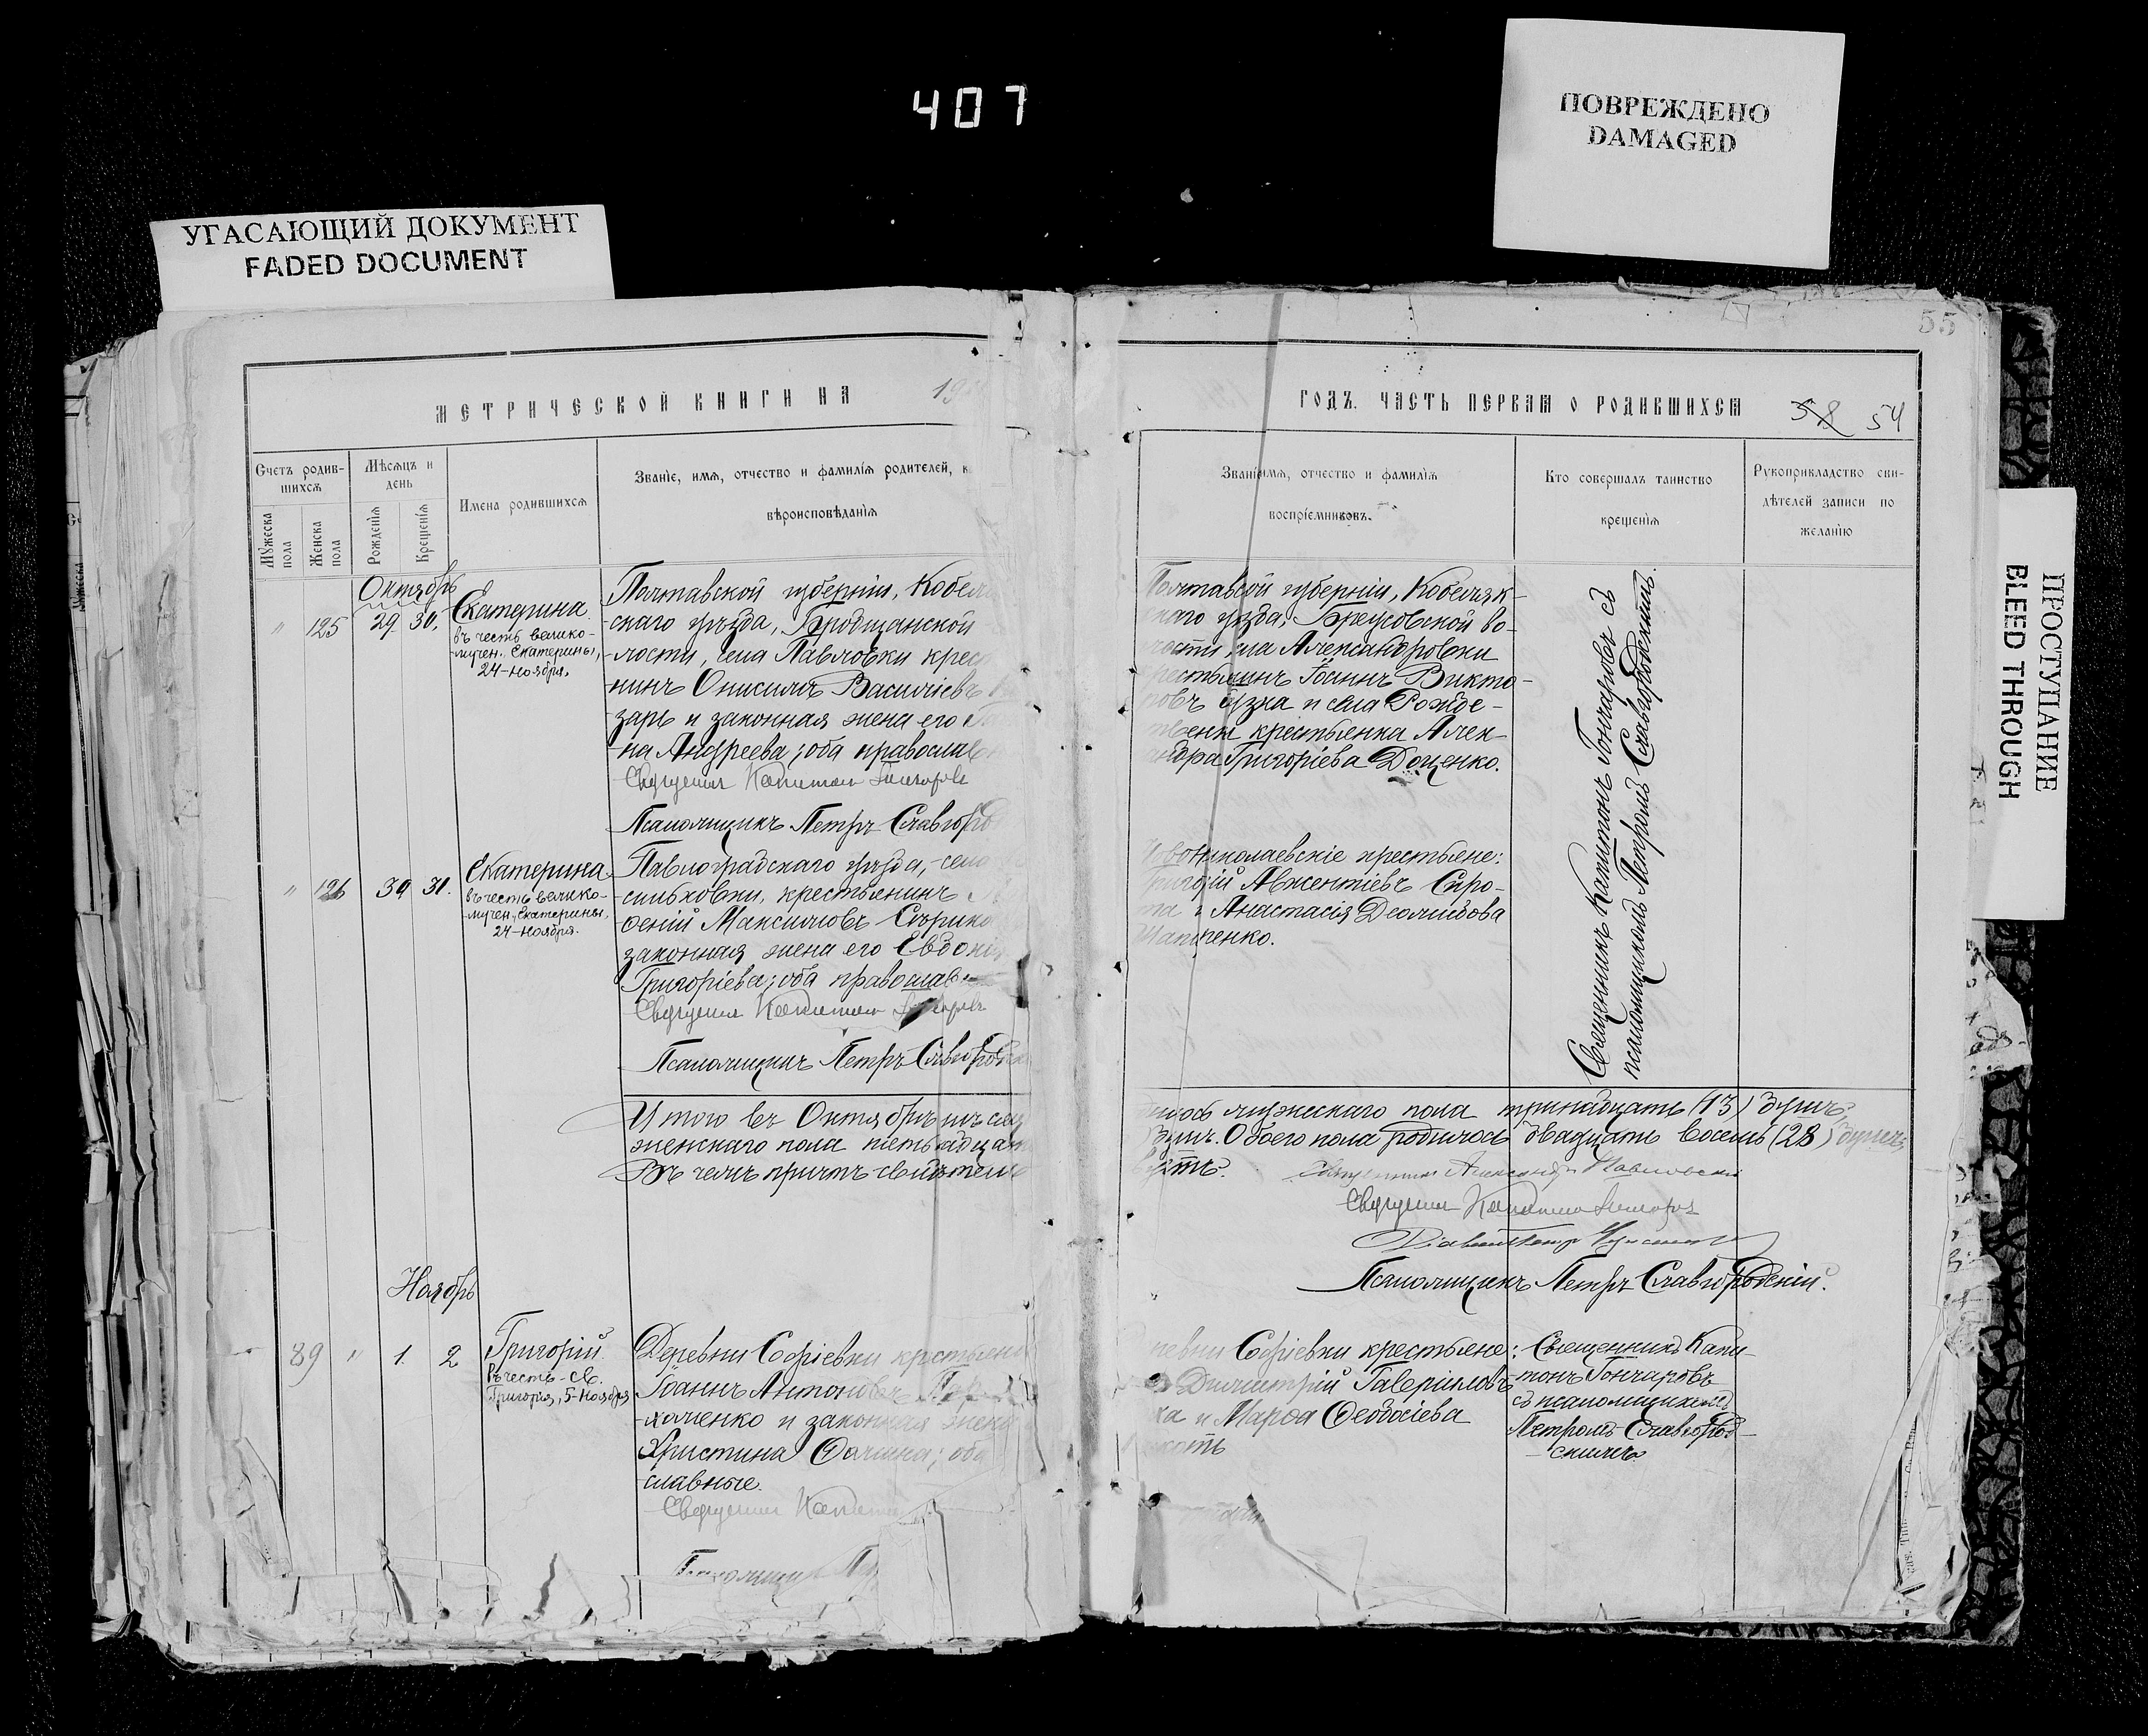 407
ПОВРЕЖДЕНО
DAMAGED
УГАСАЮЩИЙ ДОКУМЕНТ
FADED DOCUMENT
ПРОСТУПАНИЕ
BLEED THROUGH
55
МЕТРИЧЕСКОЙ КНИГИ НА 19
ГОДЪ. ЧАСТЬ ПЕРВАЯ О РОДИВШИХСЯ
58 54
Счетъ родив-
шихся
Мужеска пола
Женска пола
Мѣсяцъ и
день
Рожденія
Крещенія
Имена родившихся
Званіе, имя, отчество и фамилія родителей, к
вѣроисповѣданія
Званіе имя, отчество и фамилія
воспріемниковъ.
Кто совершалъ таинство
крещенія
Рукоприкладство сви-
дѣтелей записи по
желанію
Октябрь
" 125 29 30.
Екатерина
въ честь велико-
-мучен. Екатерины,
24-ноября.
Полтавской губерніи, Кобел
скаго уѣзда, Бродщанской
-лости, села Павловки крес
нинъ Онисимъ Василіевъ
зарь и законная жена его
на Андреева; оба православ
Священникъ Капитонъ Гончаровъ
Псаломщикъ Петръ Славгоро
Полтавской губерніи, Кобеляк-
скаго уѣзда, Бреусовской во-
лости села Александровки
крестьянинъ Іоаннъ Викто-
ровъ Гузна и села Рожде-
ствени крестьянка Алек-
андра Григоріева Доценко.
Священникъ Капитонъ Гончаровъ съ
псаломщикомъ Петромъ Славгородскимъ.
" 126 30 31.
Екатерина
въ честь велико-
-мучен. Екатерины,
24-ноября.
Павлоградскаго уѣзда, села
сильковки, крестьянинъ
ѳеній Максимовъ
законная жена его Евдокія
Григоріева; оба православ
Священникъ Капитонъ Гончаровъ
Псаломщикъ Петръ Славгородс
Новониколаевскіе крестьяне:
Григорій Авксентіевъ Сиро-
та и Анастасія Деомидова
Шапренко.
Итого въ Октябрѣ мѣсяц
женскаго пола пятьнадцат
Въ чемъ причтъ свидѣтельс
мужескаго пола тринадцать (13) душъ,
душъ. Обоего пола родилось двадцать восемь (28) душъ,
вуетъ.
Священникъ Александръ Павловскій
Священникъ Капитонъ Гончаровъ
Діаконъ Петръ
Псаломщикъ Петръ Славгородскій.
Ноябрь
89 " 1. 2
Григорій
въ честь св.
Григорія, 5-ноября
Деревни Софіевки крестьяни
Іоаннъ Антоновъ
-хоменко и законная жена
Христина Ѳомина; оба
славные.
Священникъ Капитон
Псаломщи
Деревни Софіевки крестьяне:
Димитрій Гавріиловъ
ха и Марѳа Ѳеодосіева
Священникъ Капи-
тонъ Гончаровъ
съ псаломщикомъ
Петромъ Славгород-
скимъ